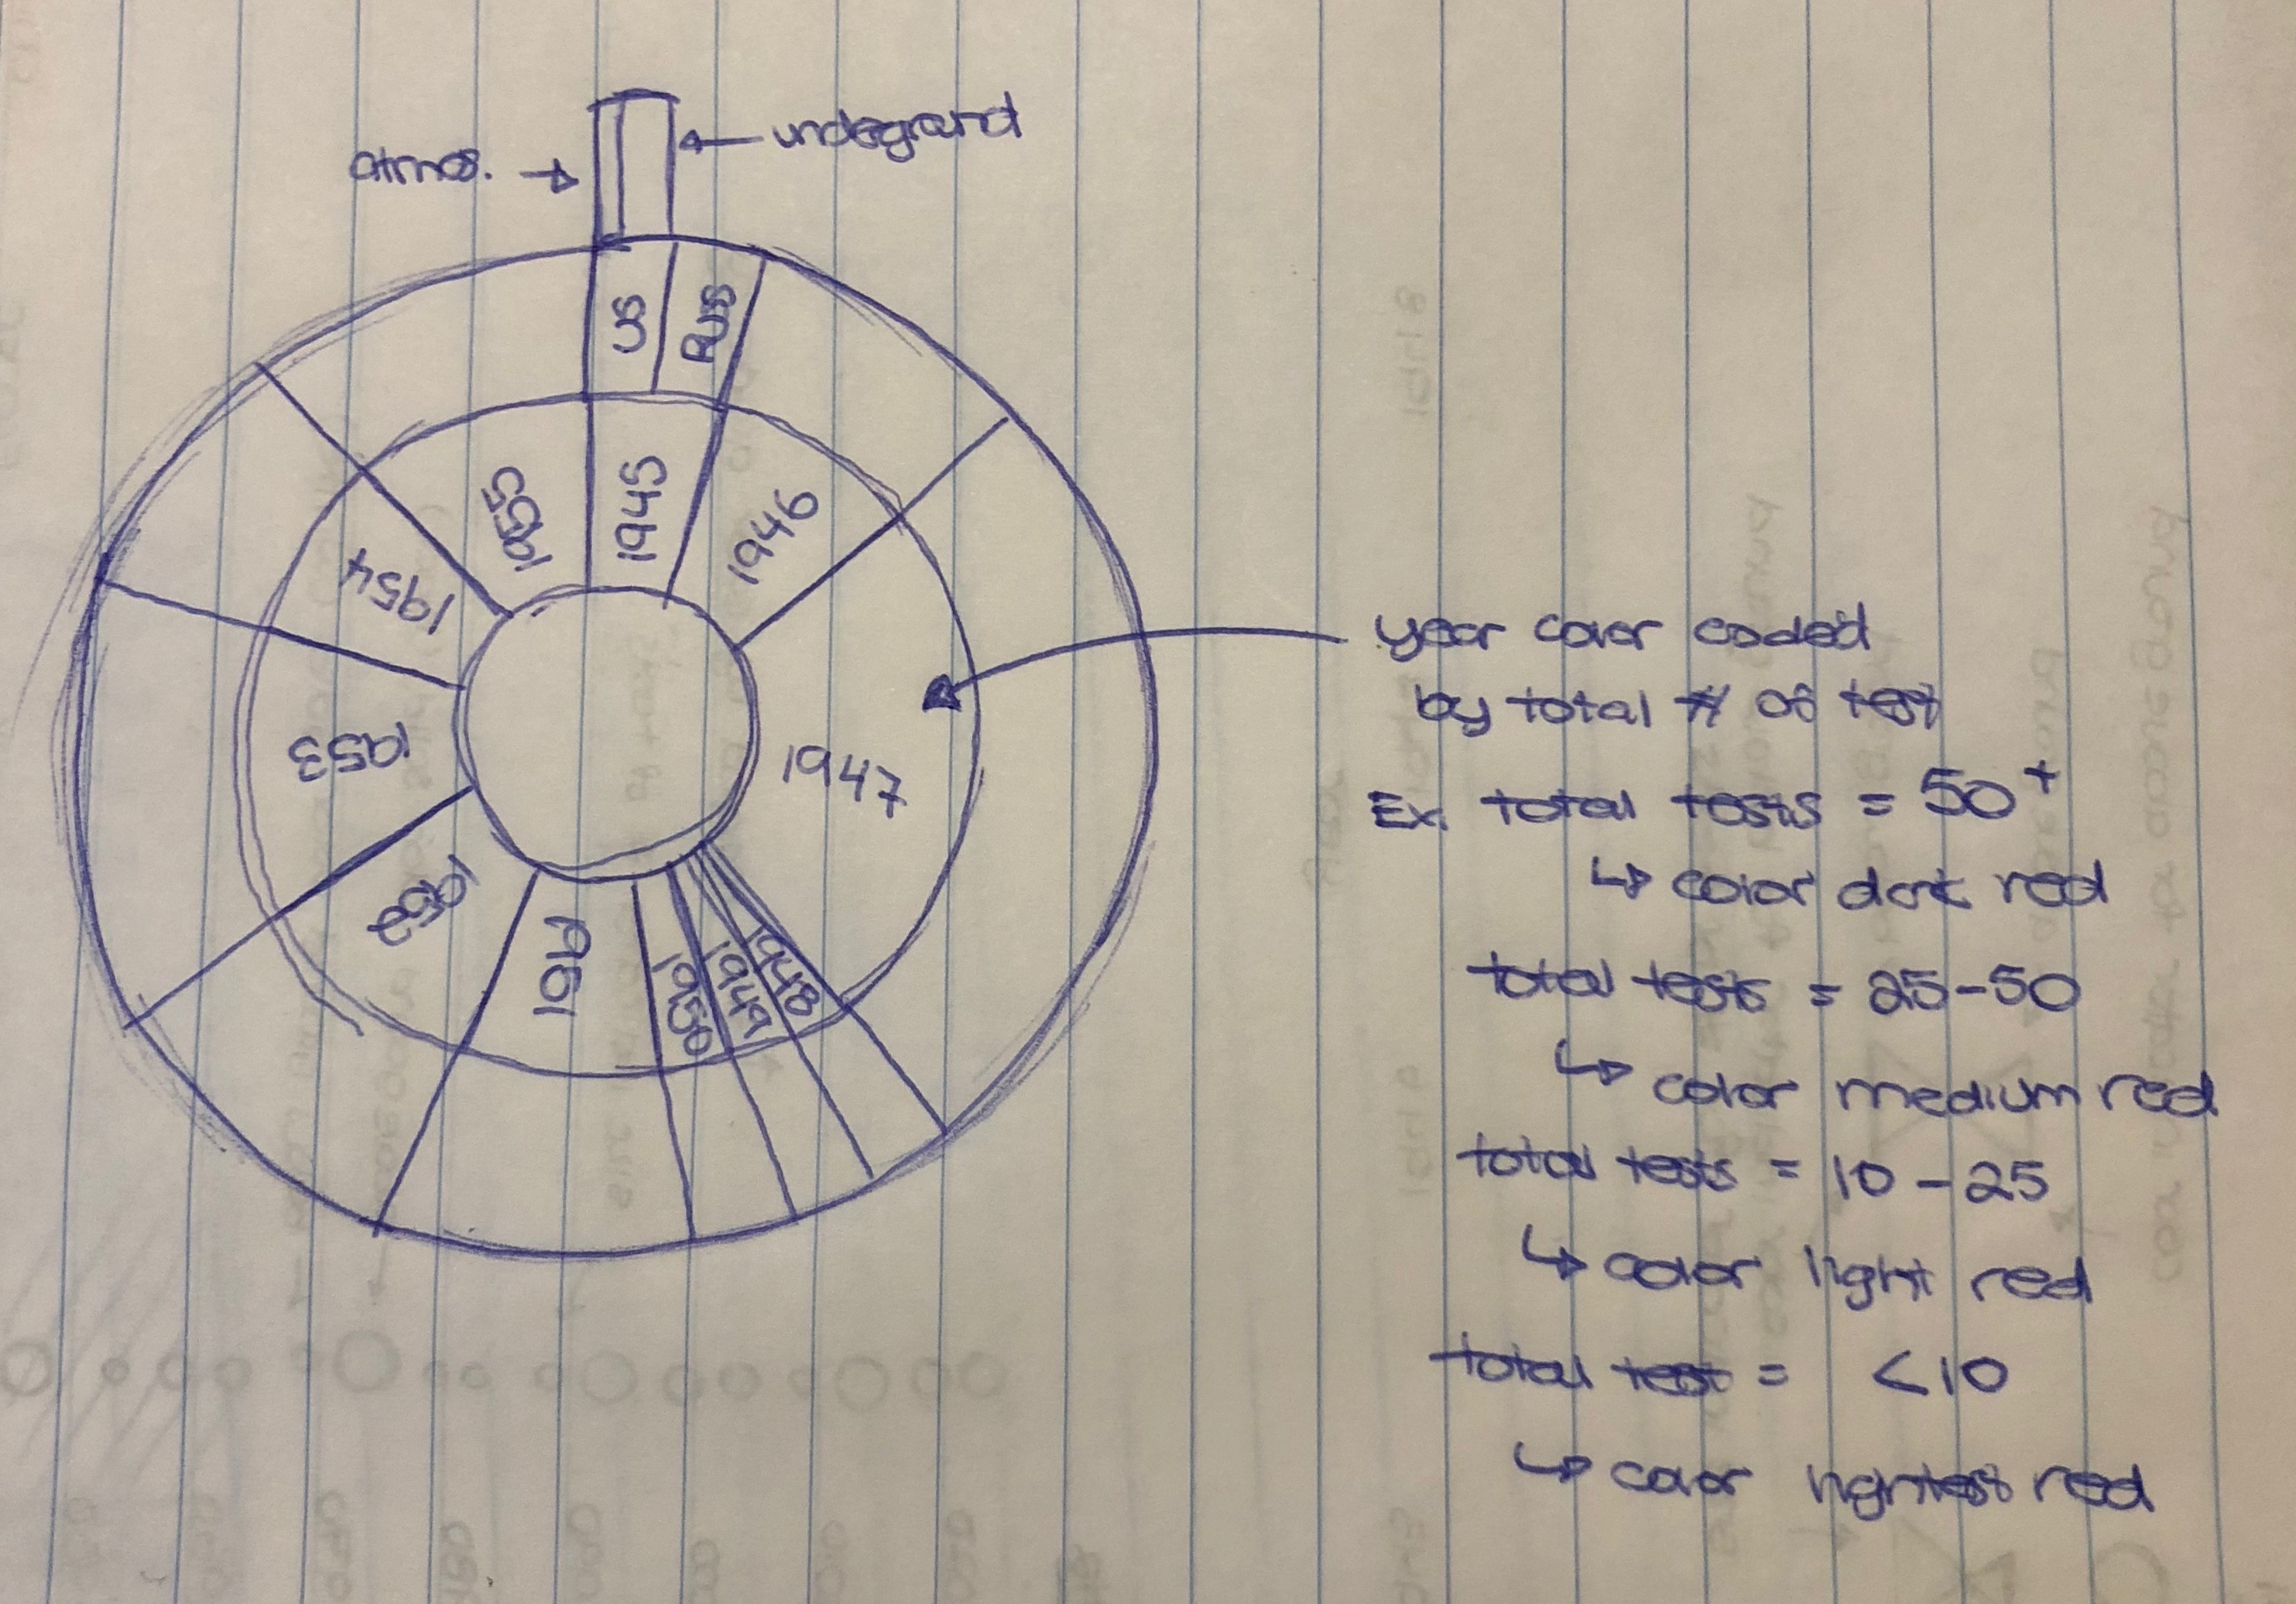 atmos.
undegrond
US
Rus
1945
1946
1947
1948
1949
1950
1951
1952
1953
1954
1955
year color coded
by total # of test
Ex. total tests = 50+
color dark red
total tests = 25-50
color medium red
total tests = 10-25
color light red
total test = <10
color lightest red